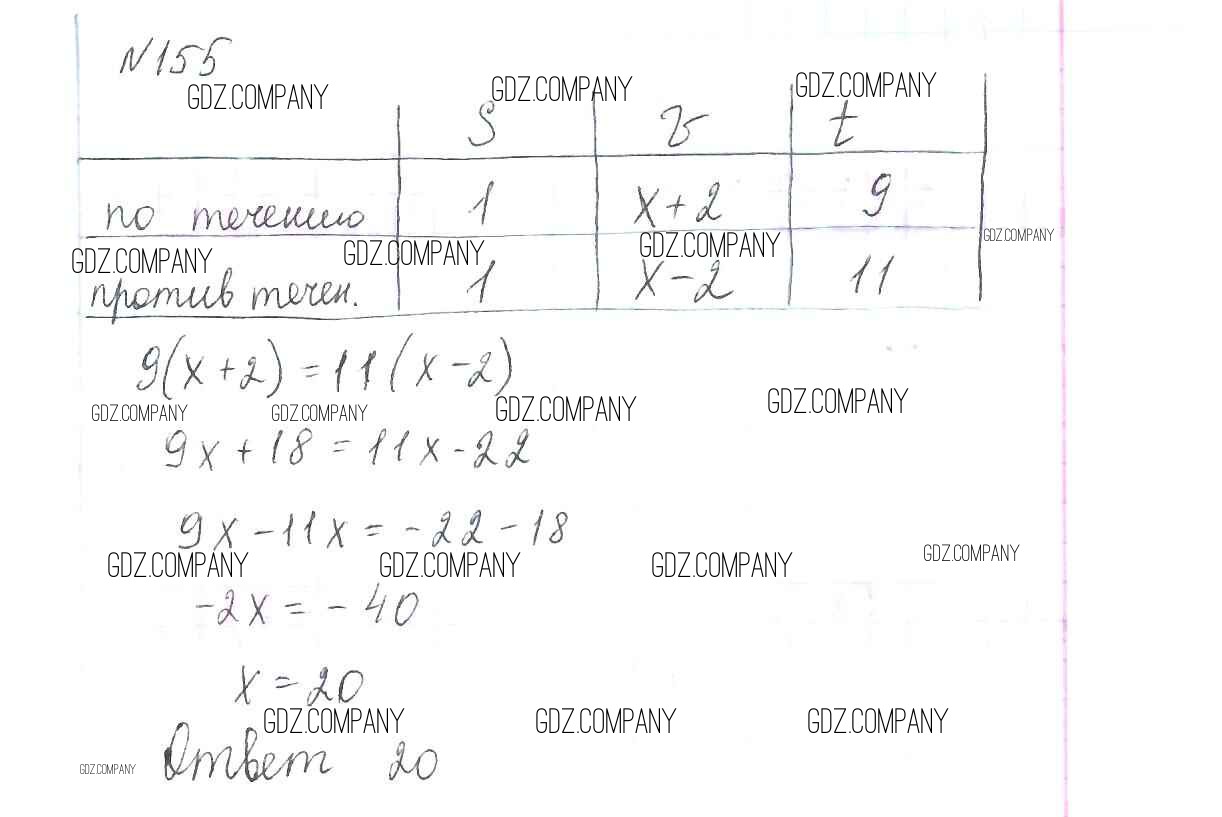 N155
GDZ.COMPANY GDZ.COMPANY GDZ.COMPANY
S v t
по течению 1 x+2 9
GDZ.COMPANY GDZ.COMPANY GDZ.COMPANY GDZ.COMPANY
против течен. 1 x-2 11
9(x+2)=11(x-2)
GDZ.COMPANY GDZ.COMPANY GDZ.COMPANY GDZ.COMPANY
9x+18=11x-22
9x-11x=-22-18
GDZ.COMPANY GDZ.COMPANY GDZ.COMPANY GDZ.COMPANY
-2x=-40
x=20
GDZ.COMPANY GDZ.COMPANY GDZ.COMPANY
GDZ.COMPANY Ответ 20